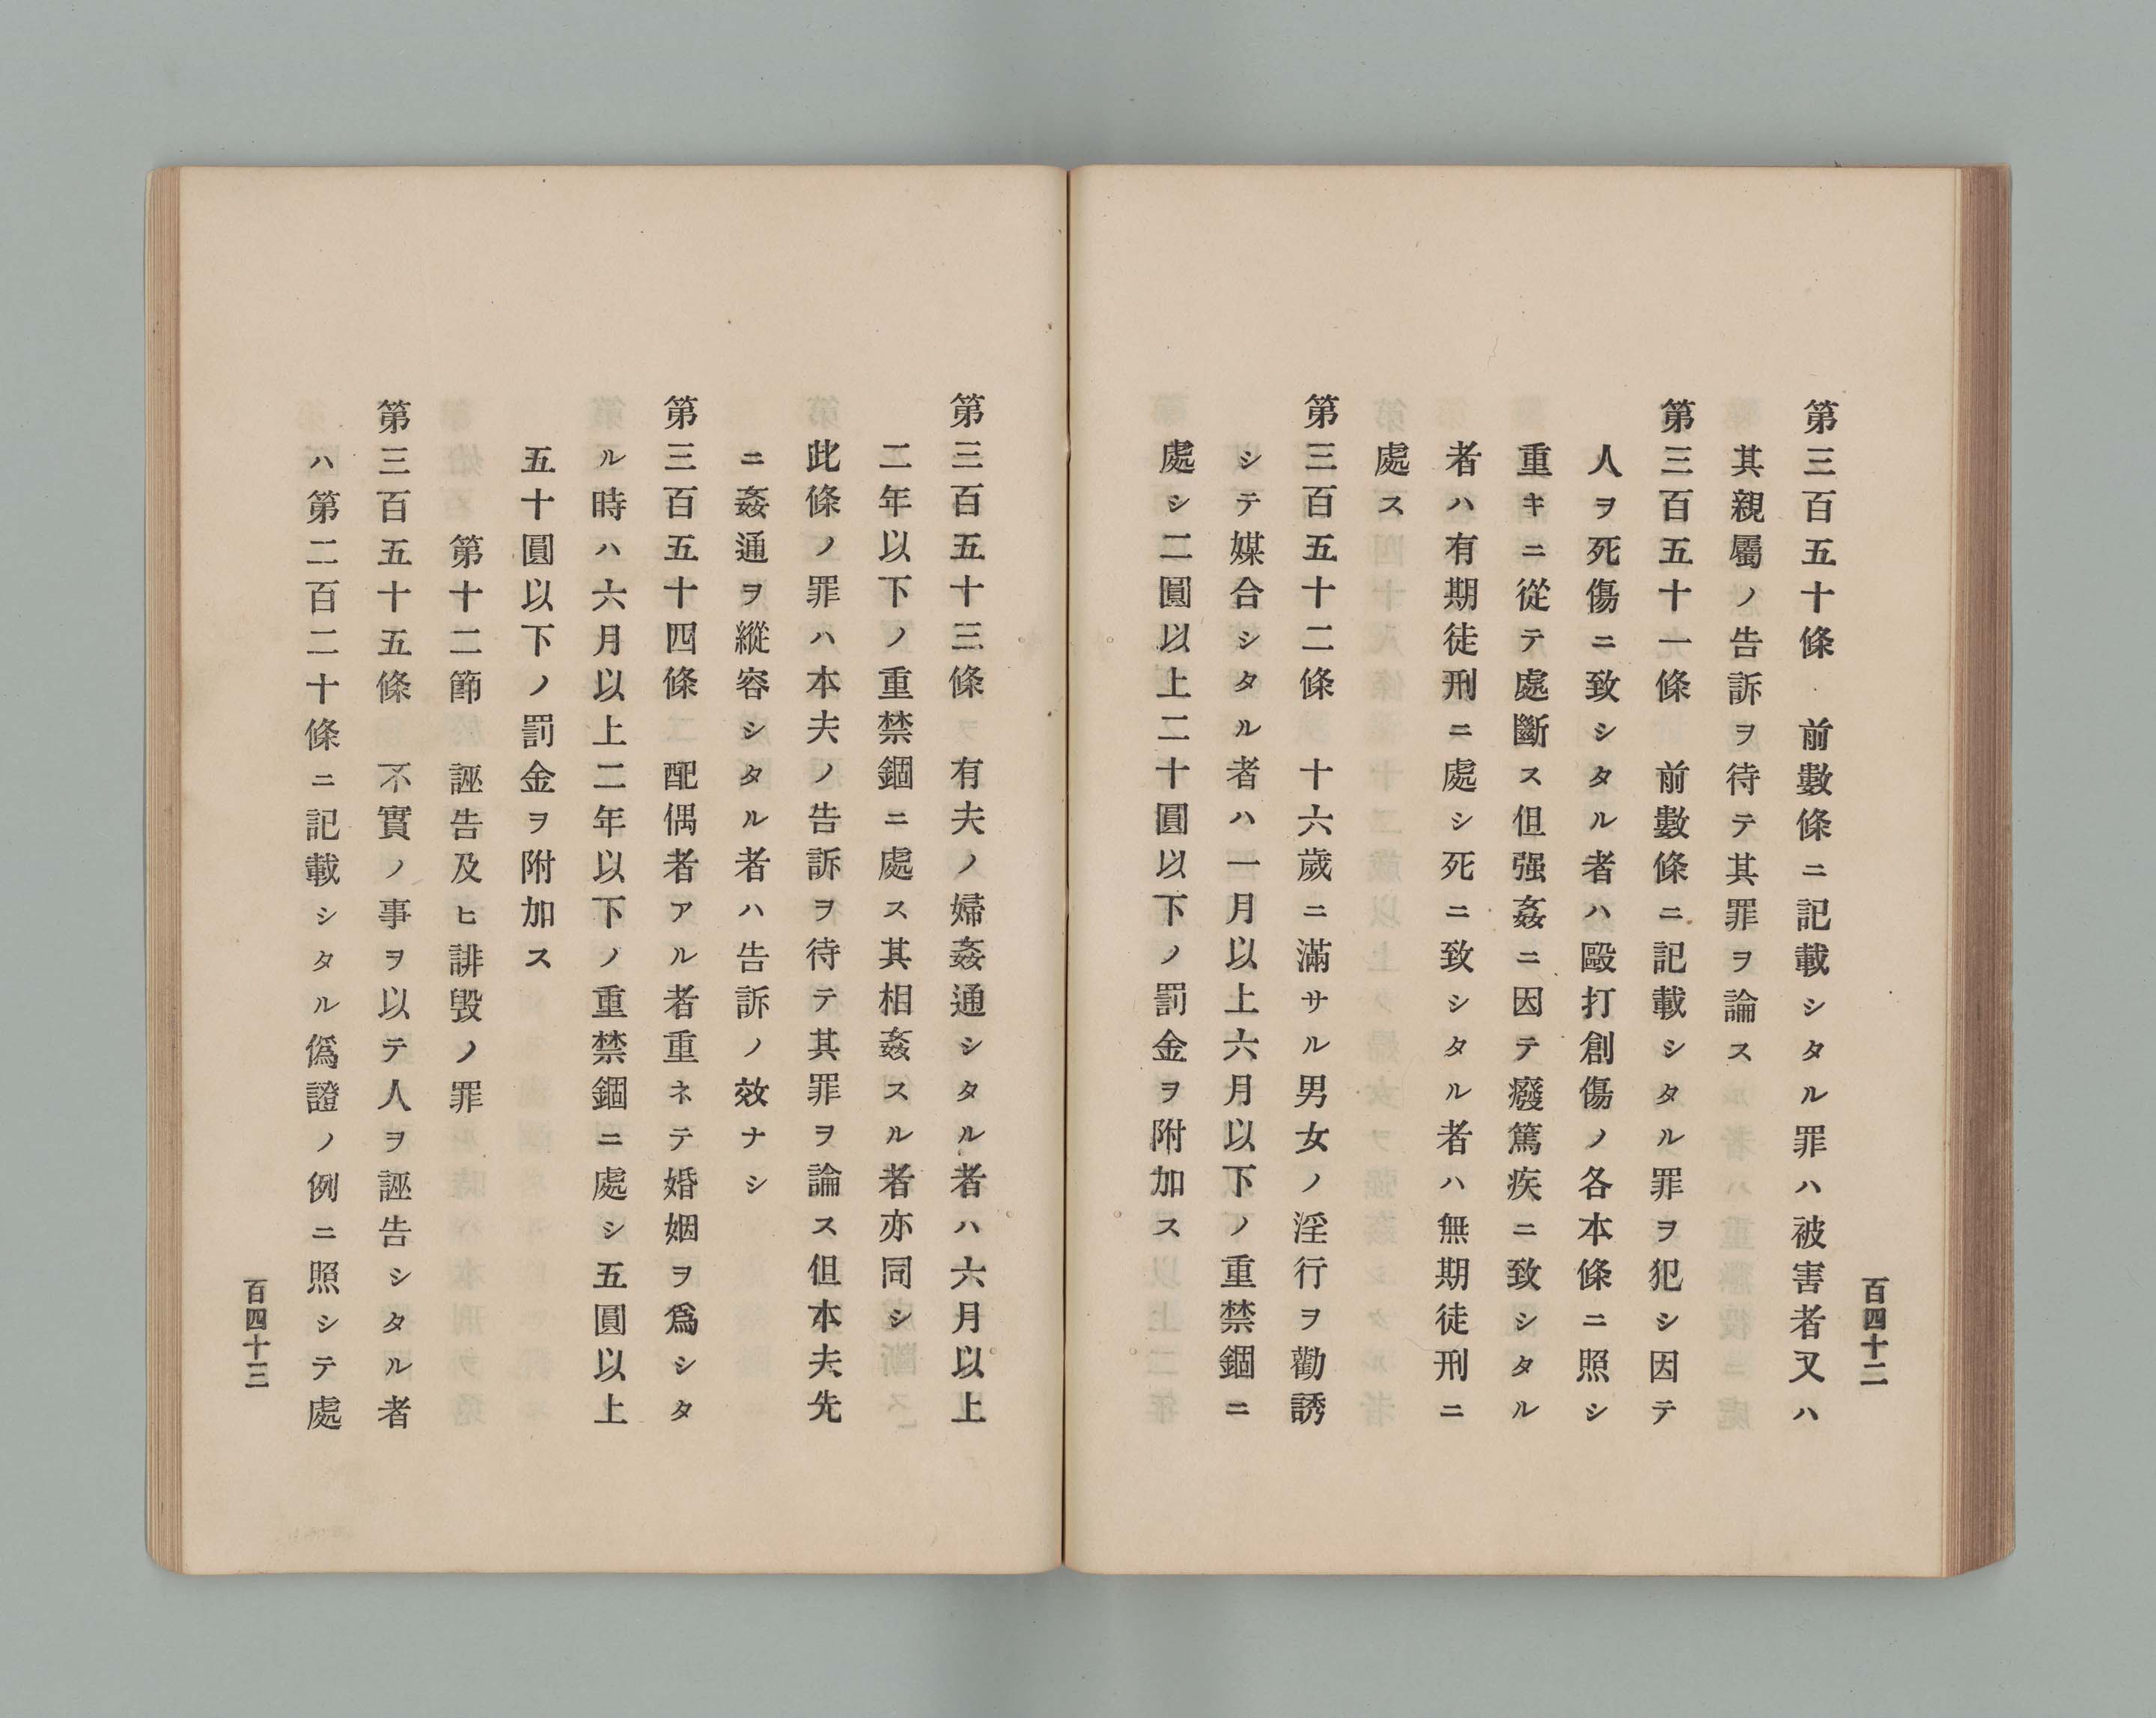 百四十二
第三百五十條　前數條ニ記載シタル罪ハ被害者又ハ
其親屬ノ告訴ヲ待テ其罪ヲ論ス
第三百五十一條　前數條ニ記載シタル罪ヲ犯シ因テ
人ヲ死傷ニ致シタル者ハ毆打創傷ノ各本條ニ照シ
重キニ從テ處斷ス但强姦ニ因テ癈篤疾ニ致シタル
者ハ有期徒刑ニ處シ死ニ致シタル者ハ無期徒刑ニ
處ス
第三百五十二條　十六歲ニ滿サル男女ノ淫行ヲ勸誘
シテ媒合シタル者ハ一月以上六月以下ノ重禁錮ニ
處シ二圓以上二十圓以下ノ罰金ヲ附加ス
第三百五十三條　有夫ノ婦姦通シタル者ハ六月以上
二年以下ノ重禁錮ニ處ス其相姦スル者亦同シ
此條ノ罪ハ本夫ノ告訴ヲ待テ其罪ヲ論ス但本夫先
ニ姦通ヲ縱容シタル者ハ告訴ノ效ナシ
第三百五十四條　配偶者アル者重ネテ婚姻ヲ爲シタ
ル時ハ六月以上二年以下ノ重禁錮ニ處シ五圓以上
五十圓以下ノ罰金ヲ附加ス
第十二節　誣告及ヒ誹毀ノ罪
第三百五十五條　不實ノ事ヲ以テ人ヲ誣告シタル者
ハ第二百二十條ニ記載シタル僞證ノ例ニ照シテ處
百四十三